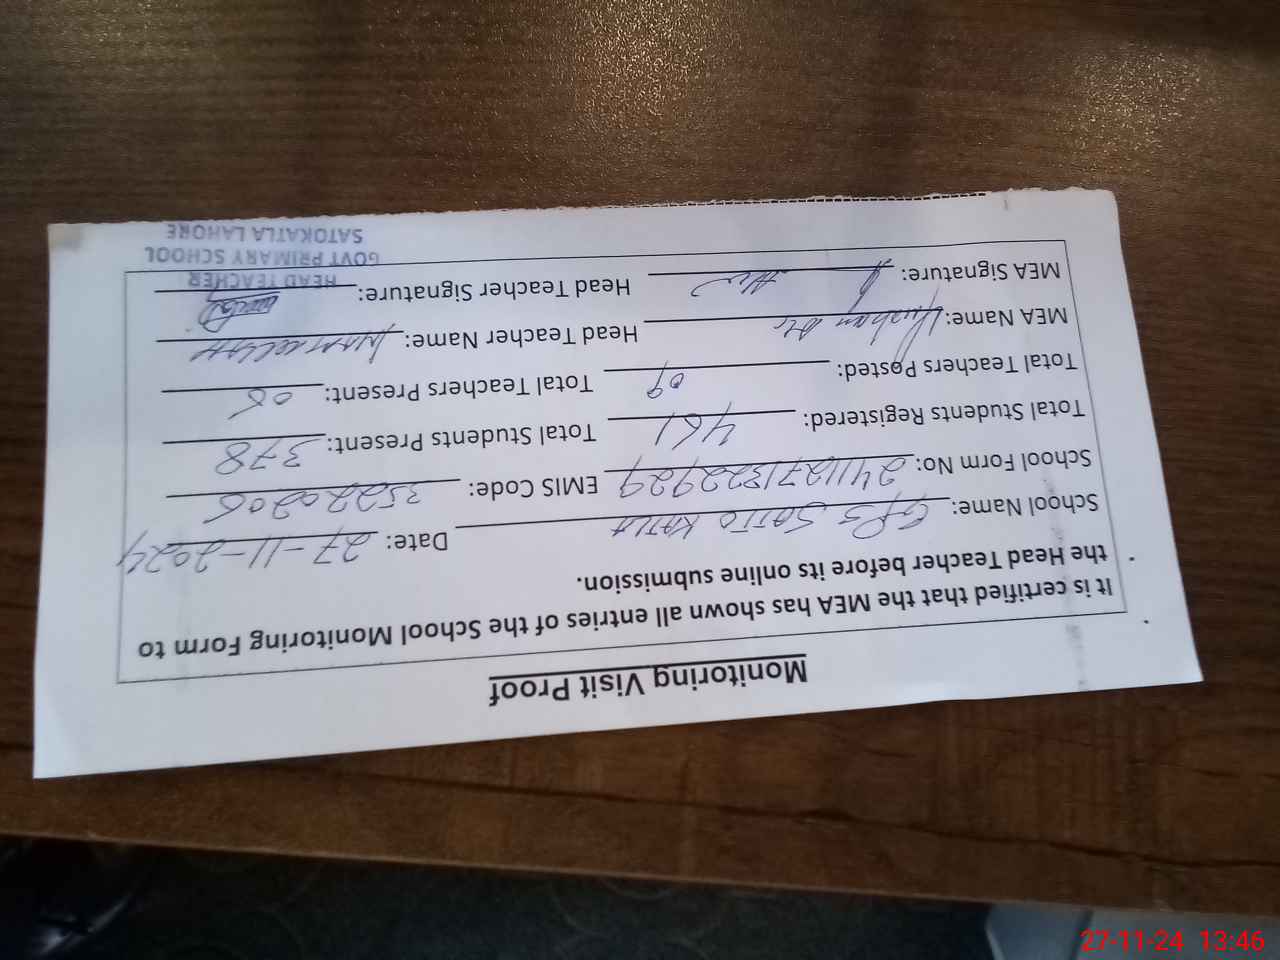 Monitoring Visit Proof
It is certified that the MEA has shown all entries of the School Monitoring Form to
the Head Teacher before its online submission.
School Name: GPS SATTO KATLA Date: 27-11-2024
School Form No: 2411271322929 EMIS Code: 35220206
Total Students Registered: 461 Total Students Present: 378
Total Teachers Posted: 09 Total Teachers Present: 08
MEA Name: Head Teacher Name:
MEA Signature: Head Teacher Signature:
HEAD TEACHER
GOVT PRIMARY SCHOOL
SATOKATLA LAHORE
27-11-24 13:46